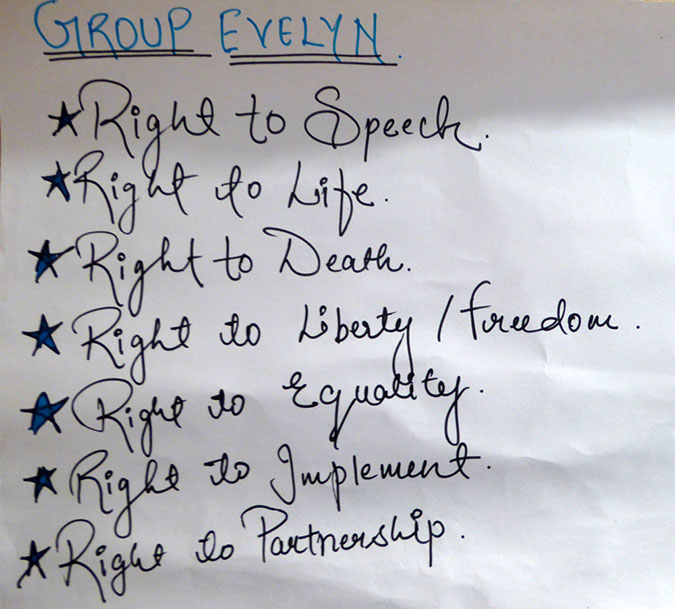 GROUP EVELYN.
★ Right to Speech.
★ Right to Life.
★ Right to Death.
★ Right to Liberty / freedom.
★ Right to Equality.
★ Right to Implement.
★ Right to Partnership.